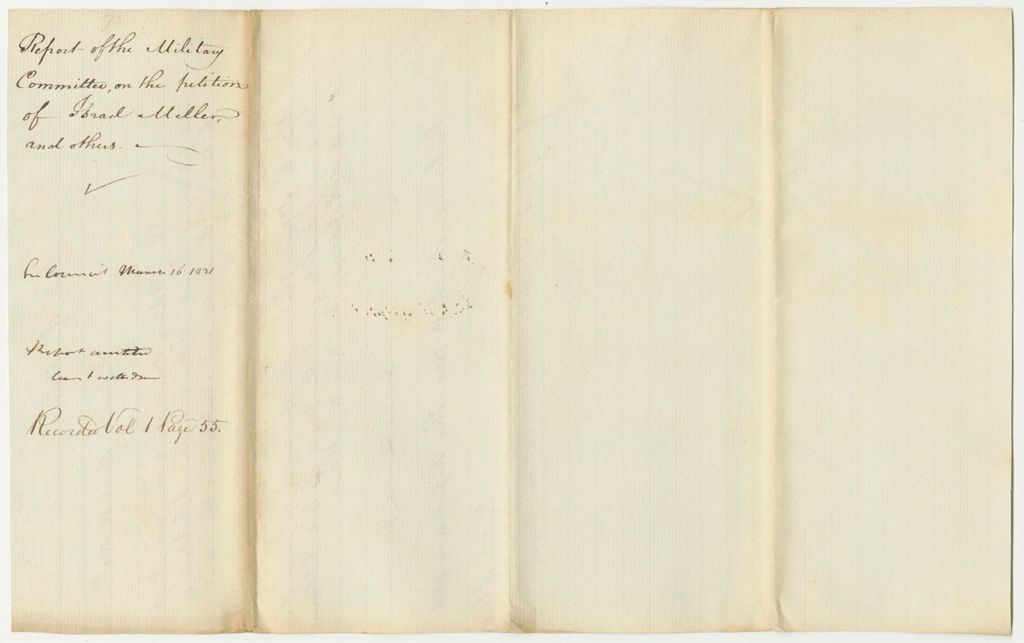 71
Report of the Military
Committee, on the petition
of Israel Miller,
and others.
In Council March 16 1821
Report accepted
leave to withdraw
Recorded Vol 1 Page 55.